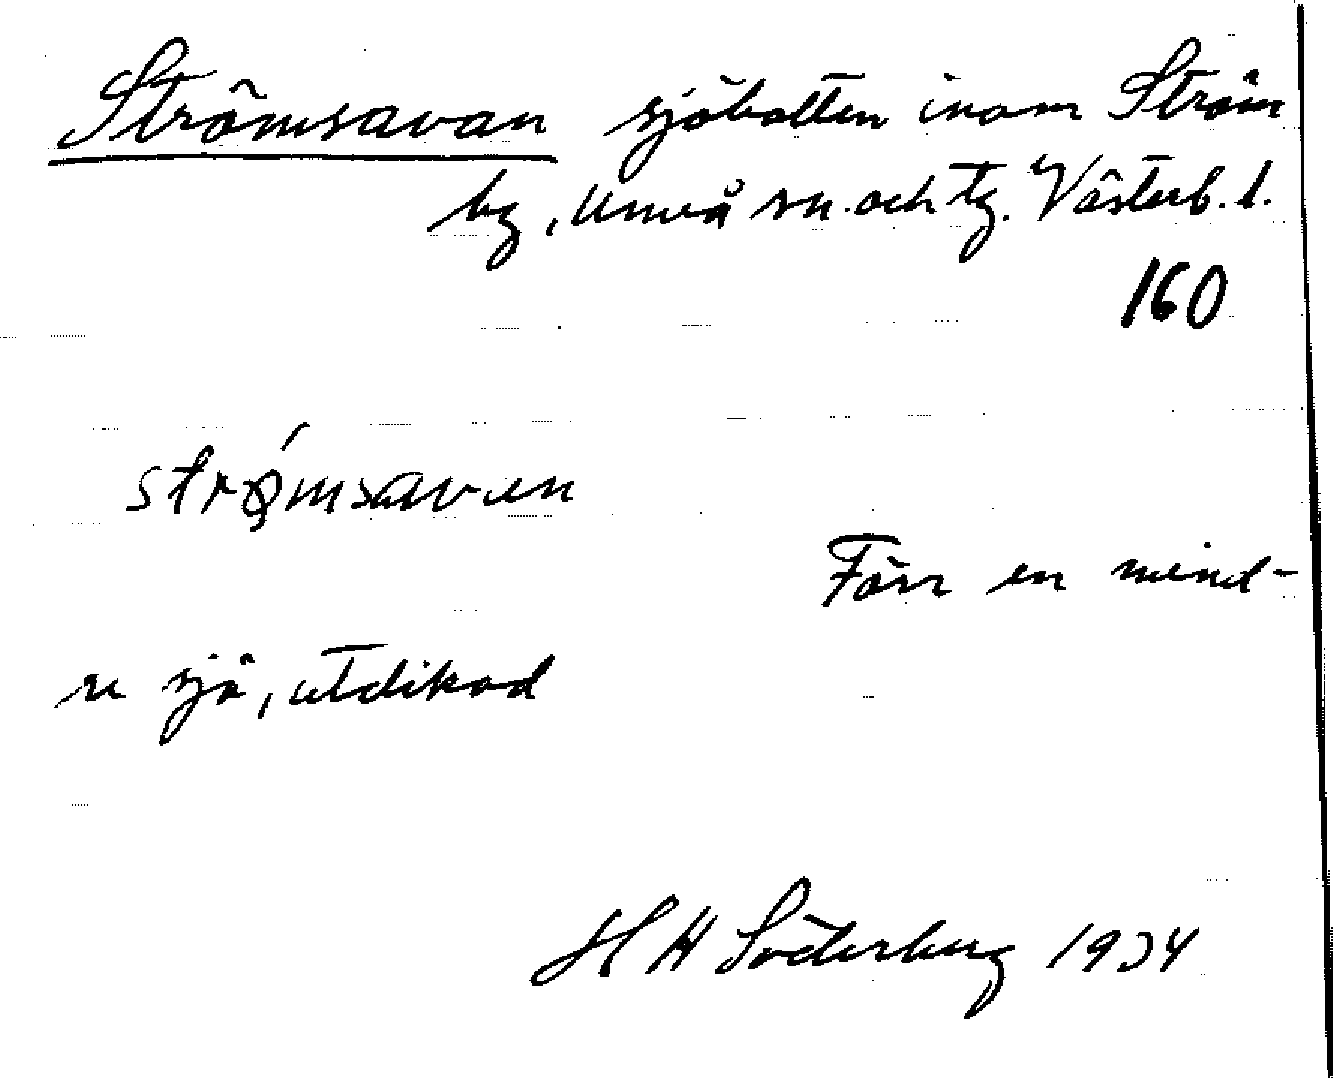 Strömsavan sjöbotten inom Ström
by, Umeå sn. och tg. Västerb. l.
160
strǿmsaven
Förr en mind-
re sjö, utdikad
H H Söderberg 1934